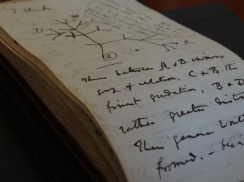 I think
D
B
A
①
Thus between A & B immens
gap of relation. C & B. the
finest gradation, B & D
rather greater distinction
Thus genera would
formed. —